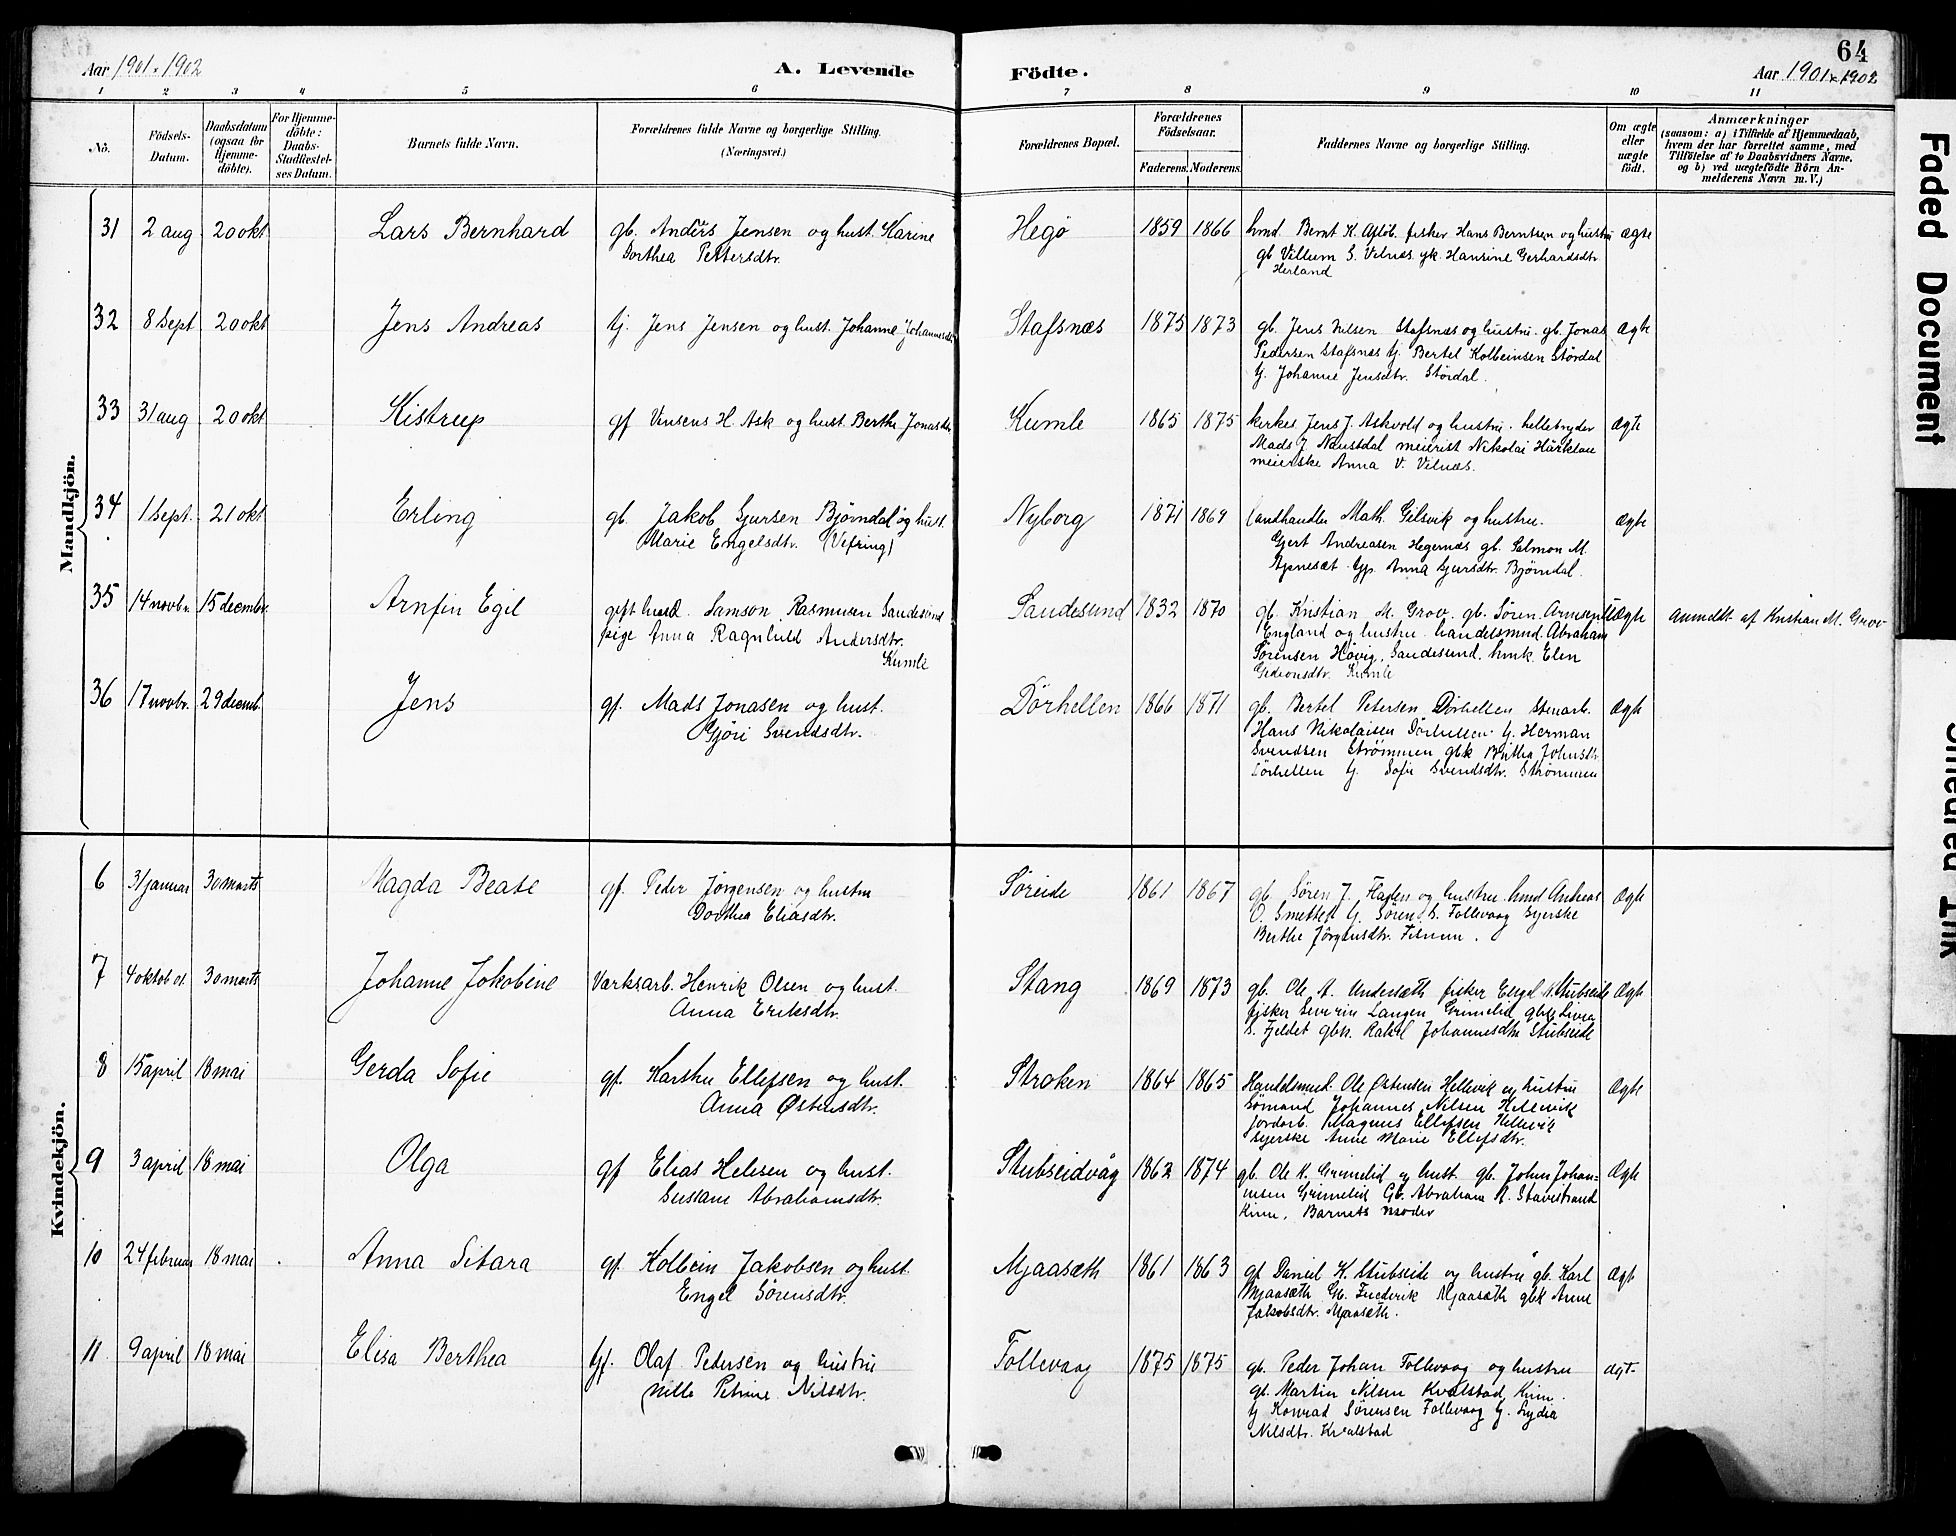 64
Aar 1901 - 1902
A. Levende Födte.
Aar 1901 x 1902
1 2 3 4 5 6 7 8 9 10 11
No.
Födsels-Datum.
Daabsdatum (ogsaa for Hjemme-döbte).
For Hjemme-döbte: Daabs-Stadfæstel-ses Datum.
Barnets fulde Navn.
Forældrenes fulde Navne og borgerlige Stilling.
(Næringsvei.)
Forældrenes Bopæl.
Forældrenes Födselsaar.
Faderens. Moderens.
Faddernes Navne og borgerlige Stilling.
Om ægte eller uægte födt.
Anmærkninger
(saasom: a) i Tilfælde af Hjemmedaab, hvem der har forrettet samme, med Tilföielse af to Daabsvidners Navne. og b) ved uægtefödte Börn An-melderens Navn m.V.)
Mandkjön.
31 2 aug 20 okt Lars Bernhard gb. Anders Jensen og hust. Karine
Dorthea Pettersdtr.
Hegö 1859 1866 Bernt K. fisker Hans Berntsen og hustru ægte
gb Villum S. Vilnæs gk. Hansine Gerhardsdtr
Herland
32 8 sept 20 okt Jens Andreas tj. Jens Jensen og hust. Johanne Johannesdtr
Stafsnæs 1875 1873 gb. Jens Nilsen Stafsnæs og hustru. gb. Jonas Ægte
Pedersen Stafsnæs tj. Bertel Kolbeinsen Stördal
tj. Johanne Jensdtr. Stördal.
33 31 aug 20 okt Kistrup gf Vinsens H. Ask og hust Berthe Jonasdtr
Kumle 1865 1875 kirkes. Jens J. Askvold og hustru. hellebryder Ægte
Mads J. Naustdal meierist Nikolai
meierske Anna V. Vilnæs.
34 1 sept. 21 okt Erling gb. Jakob Gjursen Bjørndal og hust.
Marie Engelsdtr. (Vefring)
Nyborg 1871 1869 Landhandler Math. Gilsvik og hustru. ægte
Gjert Andreasen Hegernæs gb. Salmon M.
Anna Gjursdtr. Bjørndal.
35 14 novbr. 15 decembr. Arnfin Egil gift Samson Rasmusen Sandesund
pige Anna Ragnhild Andersdtr.
Kumle
Sandesund 1832 1870 gb. Kristian M. Grov. gb. Søren Uægte Anmeldt af Kristian M. Grov
England og hustru. handelsmnd. Abraham
Sørensen Høvig, Sandesund. Elen
Gedionsdtr. Kumle
36 17 novbr. 29 decemb. Jens gf. Mads Jonasen og hust.
Gjöri Svendsdtr.
Dörhellen 1866 1871 gb. Bertel Petersen Dörhellen stenarb. Ægte
Hans Nikolaisen Dörhellen. tj. Herman
Svendsen Strømmen gbk Brithe Johnsdtr
Dörhellen tj. Sofie Svendsdtr. Strømmen
Kvindekjön.
6 31 januar 30 marts Magda Beate gf. Peder Jörgensen og hustru
Dorthea Eliasdtr.
Søreide 1861 1867 gb. Søren J. Fladen og hustru. Andreas Ægte
O. Smetted tj. Søren S. Follevaag syerske
Berthe Jörgensdtr.
7 4 oktob 30 marts Johanne Jakobine Værksarb. Henrik Olsen og hust.
Anna Eriksdtr.
Stang 1869 1873 gb. Ole A. fisker Engel Stubseide Ægte
fisker Severin Langen Grimelid gbk Livra
S. Fjeldet gbk. Rakel Johannesdtr Stubseide
8 15 april 18 mai Gerda Sofie gf. Karsten Ellefsen og hust.
Anna Østensdtr.
Stroken 1864 1865 Handelsmnd. Ole Østensen Hellevik og hustru Ægte
Sømand Johannes Nilsen Hellevik
jordarb. Magnus Ellefsen Hellevik
syerske Anne Marie Ellefsdtr.
9 3 april 18 mai Olga gf Elias Helesen og hust.
Susane Abrahamsdtr.
Stubseidvåg 1862 1874 gb. Ole K. Grimelid og hust. gb. Johan Johan- Ægte
nesen Grimelid Gb. Abraham A. Stavestrand
Kinn, Barnets moder
10 24 februar 18 mai Anna Sitara gf. Kolbein Jakobsen og hust.
Engel Sørensdtr.
Mjaasæth 1861 1863 gf Daniel K. Stubseide og hustru gb. Karl Ægte
Mjaasæth Gb. Frederik Mjaasæth gbk Anne
Jakobsdtr. Mjaasæth.
11 9 april 18 mai Elisa Berthea tj. Olaf Pedersen og hustru
Nille Petrine Nilsdtr.
Follevaag 1875 1875 gb. Peder Johan Follevaag og hustru ægt-
gf. Martin Nilsen Kvalstad, Kinn.
tj Konrad Sørensen Follevaag tj. Lydia
Nilsdtr. Kvalstad
Faded Document
Smeared Ink